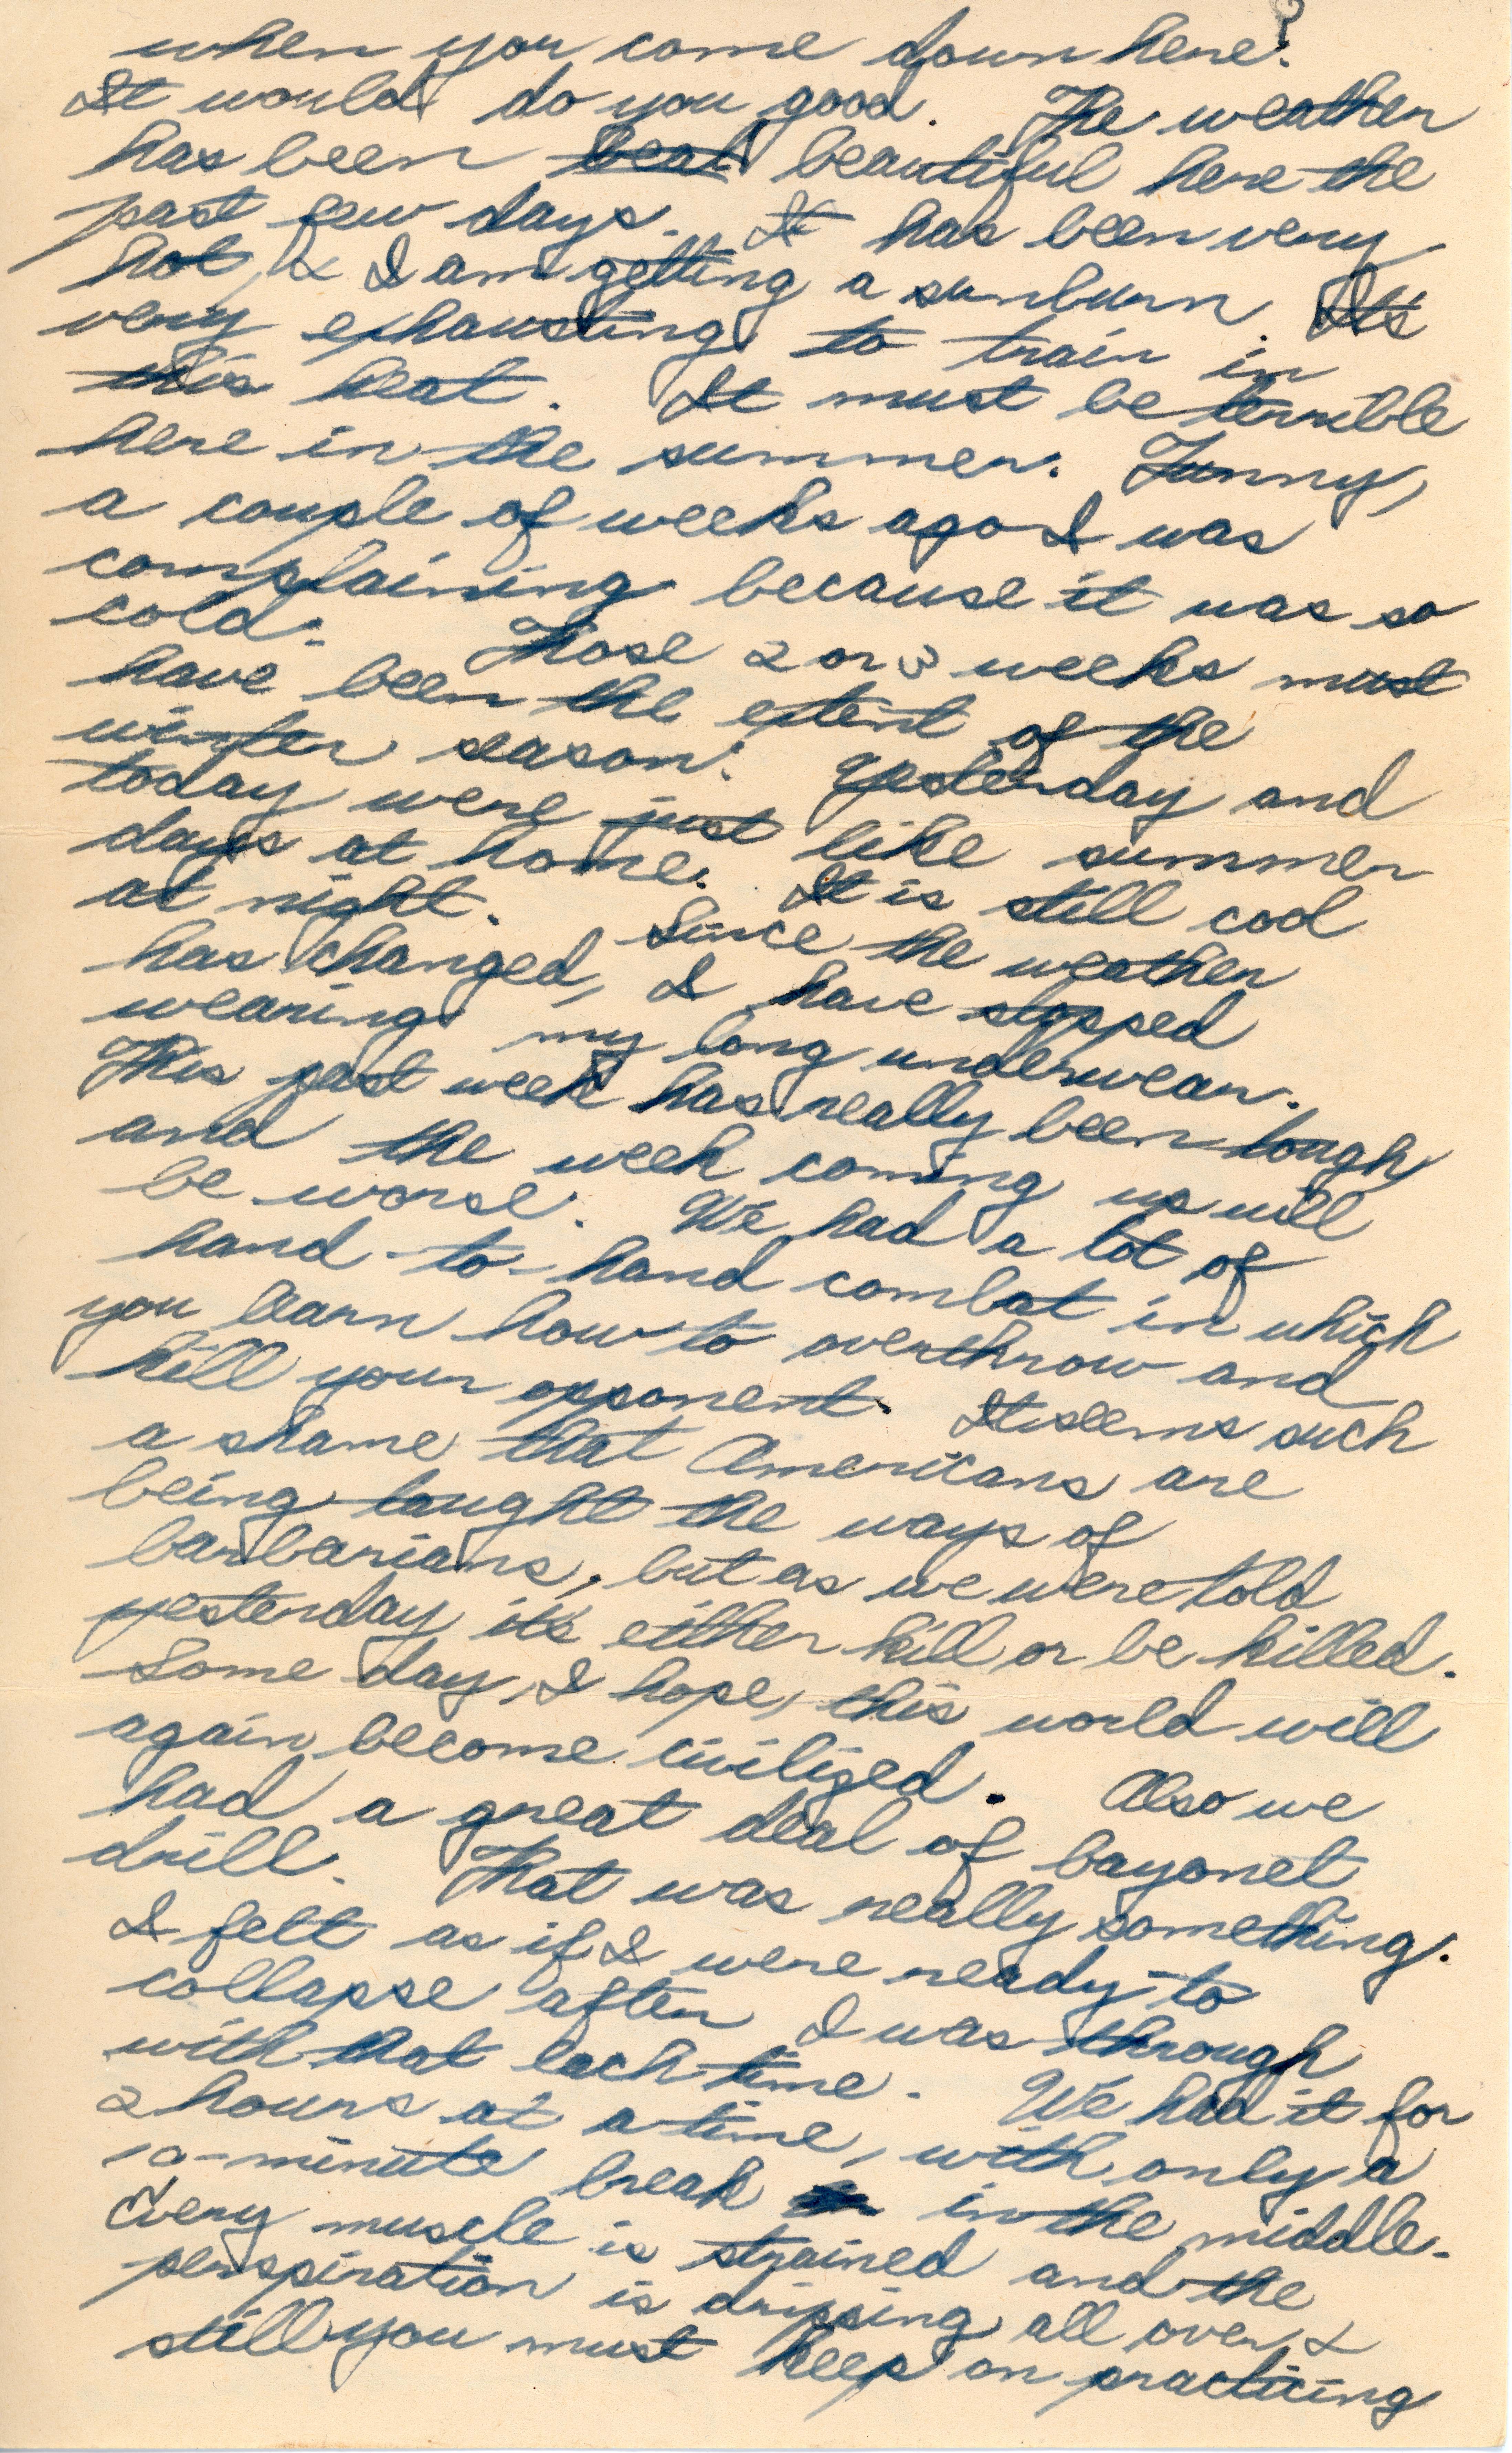 when you come down here?
It would do you good. The weather
has been beat beautiful here the
past few days. It has been very
hot, & I am getting a sunburn. It's
very exhausting to train in
this heat. It must be terrible
here in the summer. Funny,
a couple of weeks ago I was
complaining because it was so
cold. Those 2 or 3 weeks must
have been the extent of the
winter season. Yesterday and
today were just like summer
days at home. It is still cool
at night. Since the weather
has changed, I have stopped
wearing my long underwear.
This past week has really been tough
and the week coming up will
be worse. We had a lot of
hand-to-hand combat in which
you learn how to overthrow and
kill your opponent. It seems such
a shame that Americans are
being taught the ways of
barbarians, but as we were told
yesterday it's either kill or be killed.
Some day, I hope, this world will
again become civilized. Also we
had a great deal of bayonet
drill. That was really something.
I felt as if I were ready to
collapse after I was through
with that each time. We had it for
2 hours at a time, with only a
10-minute break in the middle.
Every muscle is strained and the
perspiration is dripping all over &
still you must keep on practicing